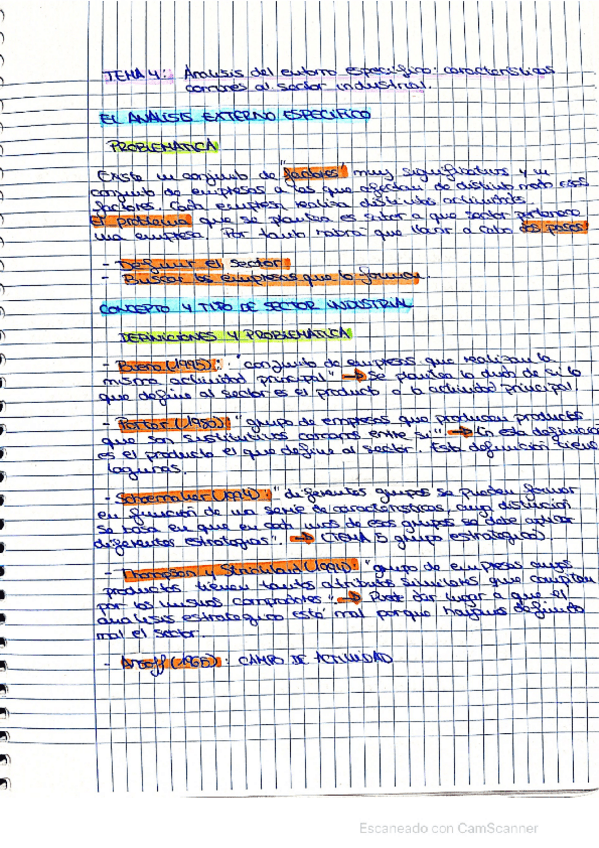 TEMA 4: Análisis del entorno específico: características
comunes al sector industrial.
EL ANÁLISIS EXTERNO ESPECÍFICO
PROBLEMÁTICA
Existe un conjunto de "factores" muy significativos y un
conjunto de empresas a las que afectan de distinto modo esos
factores. Cada empresa realiza distintas actividades.
El problema que se plantea es saber a que sector pertenece
una empresa. Por tanto habrá que llevar a cabo dos pasos:
- Definir el sector
- Buscar las empresas que lo forman.
CONCEPTO Y TIPO DE SECTOR INDUSTRIAL
DEFINICIONES Y PROBLEMATICA
- Bueno (1995): "conjunto de empresas que realizan la
misma actividad principal" → se plantea la duda de si lo
que define al sector es el producto o la actividad principal.
- Porter (1980): "grupo de empresas que producen productos
que son sustitutivos cercanos entre si" → En esta definición
es el producto el que define al sector. Esta definición tiene
lagunas.
- (1994): "diferentes grupos se pueden formar
en función de una serie de características, cuya distinción
se basa en que en cada uno de esos grupos se debe aplicar
diferentes estrategias". → (TEMA 5 grupo estratégico)
- Thompson y Strickland (1994): "grupo de empresas cuyos
productos tienen tantos atributos similares que compiten
por los mismos compradores" → Puede dar lugar a que el
análisis estratégico esté mal porque hayamos definido
mal el sector.
- Ansoff (1965): CAMPO DE ACTIVIDAD
Escaneado con CamScanner